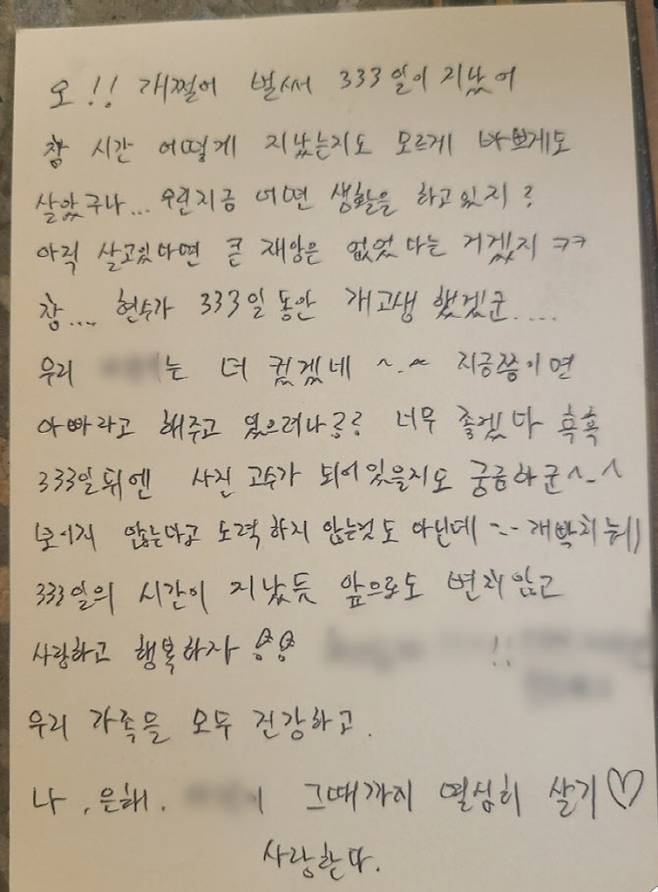 오!! 개쩔어 벌써 333일이 지났어
참 시간 어떻게 지났는지도 모르게 바쁘게도
살았구나... 우린지금 어떤 생활을 하고있지?
아직 살고있다면 큰 재앙은 없었다는 거겠지 ㅋㅋ
참... 현수가 333일동안 개고생 했겠군....
우리 는 더 컸겠네 ^.^ 지금쯤이면
아빠라고 해주고 있으려나?? 너무 좋겠다 흑흑
333일뒤엔 사진 고수가 되어있을지도 궁금하군^_^
보이지 않는다고 노력하지 않는것도 아닌데
333일의 시간이 지났듯 앞으로도 변치않고
사랑하고 행복하자 !!
우리 가족들 모두 건강하고.
나, 은해. 이 그때까지 열심히 살기♡
사랑한다.